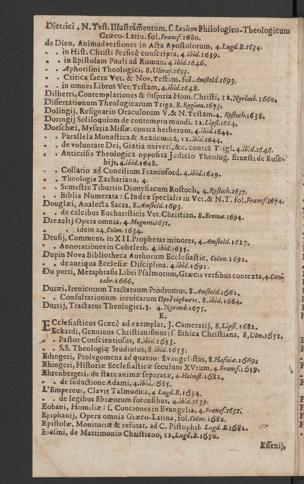 Dietrici, N. Test. Illustramentum, s. Lexicon Philologico-Theologicum
Græco-Latin. fol. Francf. 1680.
de Dieu, Animadversiones in Acta Apostolorum, 4. Lugd.B. 1634.
. . in Hist. Christi Persicè conscripta, 4. ibid. 1639.
. . in Epistolam Pauli ad Roman. 4. ibid. 1646.
. . Aphorismi Theologici, 8. Ultraj. 1693.
. . Critica sacra Vet. & Nov. Testam. fol. Amsteld. 1693.
. . in omnes Libros Vet. Testam, 4. ibid. 1648.
Dilherri, Contemplationes & suspiria Hom. Christi, 12. Noribb. 1660.
Dissertationum Theologicarum Triga, 8. Regiom. 1675.
Dolingij, Resignatio Oraculorum V. & N. Testam. 4. Rostoch. 1638.
Doringij Soliloquium de contemptu mundi. 12. Lips. 1654.
Dorschæi, Mysaria Missæ. contra herbrerum, 4. ibid. 1644.
. . Parallela Monastica & Academica, 12. ibid. 1644.
. . de voluntate Dei, Gratia univers. &c. contra Trigl. 4. ibid. 1646.
. . Anticrisis Theologica opposita Judicio Theolog. Ernesti de Eusebijs,
4. ibid. 1648.
. . Collatio ad Concilium Francoford. 4. ibid. 1649.
. . Theologia Zachariana, 4.
. . Semestre Tiburtio Dionysiacum Rostoch, 4. Rostoch. 1657.
. . Biblia Numerata: s. Index specialis in Vet. & N. T. fol. Francf. 1674.
Douglæi, Analecta Sacra, 8. Amsteld. 1693.
. . de calcibus Eucharisticis Vet. Christian. 8. Bremæ. 1694.
Drexelij Opera omnia, 4. Mogunt. 1651.
. . idem 24. Colon. 1634.
Drusij, Comment. in XII. Prophetas minores, 4. Amsteld. 1627.
. . Annotationes in Coheleth. 4. ibid. 1635.
Dupin Nova Bibliotheca Authorum Ecclesiastic. Colon. 1692.
. . de antiqua Ecclesiæ Disciplina. 4. ibid. 1691.
Du porti, Metaphrasis Libri Psalmorum, Græcis versibus contexta, 4. Cantabr.
1666.
Duræi, Irenicorum Tractatuum Prodromus, 8. Amsteld. 1662.
. . Consultationum irenicarum, 8. ibid. 1664.
Durrij, Tractatus Theologici. 3. 4. Norimb. 1675.
E.
Ecclesiasticus Græcè ad exemplar. J. Camerarij, 8. Lips. 1682.
Eckardi, Genuinus Christianismus f. Ethica Christiana, 8. Ulm. 1652.
. . Pastor Conscientiosus, 8. ibid. 1653.
. . SS. Theologiæ Studiosus, 8. ibid. 1653.
Edngeri, Prolegomena ad quatuor Evangelistas, 8. Hafniæ. 1689.
Ehngeri, Historiæ Ecclesiasticæ seculum XVtum. 4. Francf. 1659.
Ehrenbergeri, de statu animæ separatæ, 4. Halmst. 1682.
. . de seductione Adami, 4. ibid. 1685.
L'Empereur, Clavis Talmudica, 4. Lugd.B. 1634.
. . de legibus Ebræorum forensibus, 4. ibid. 1637.
Eobani, Homiliæ: s. Conciones in Evangelia. 4. Francf. 1652.
Epiphanij, Opera omnia Græco-Latina, fol. Colon. 1682.
Epistolæ, Monitoriæ & refutat. ad C. Pistophil. Lugd.B. 1682.
Erasmi, de Matrimonio Christiano, 12. Lugd.B. 1650.
Essenij,